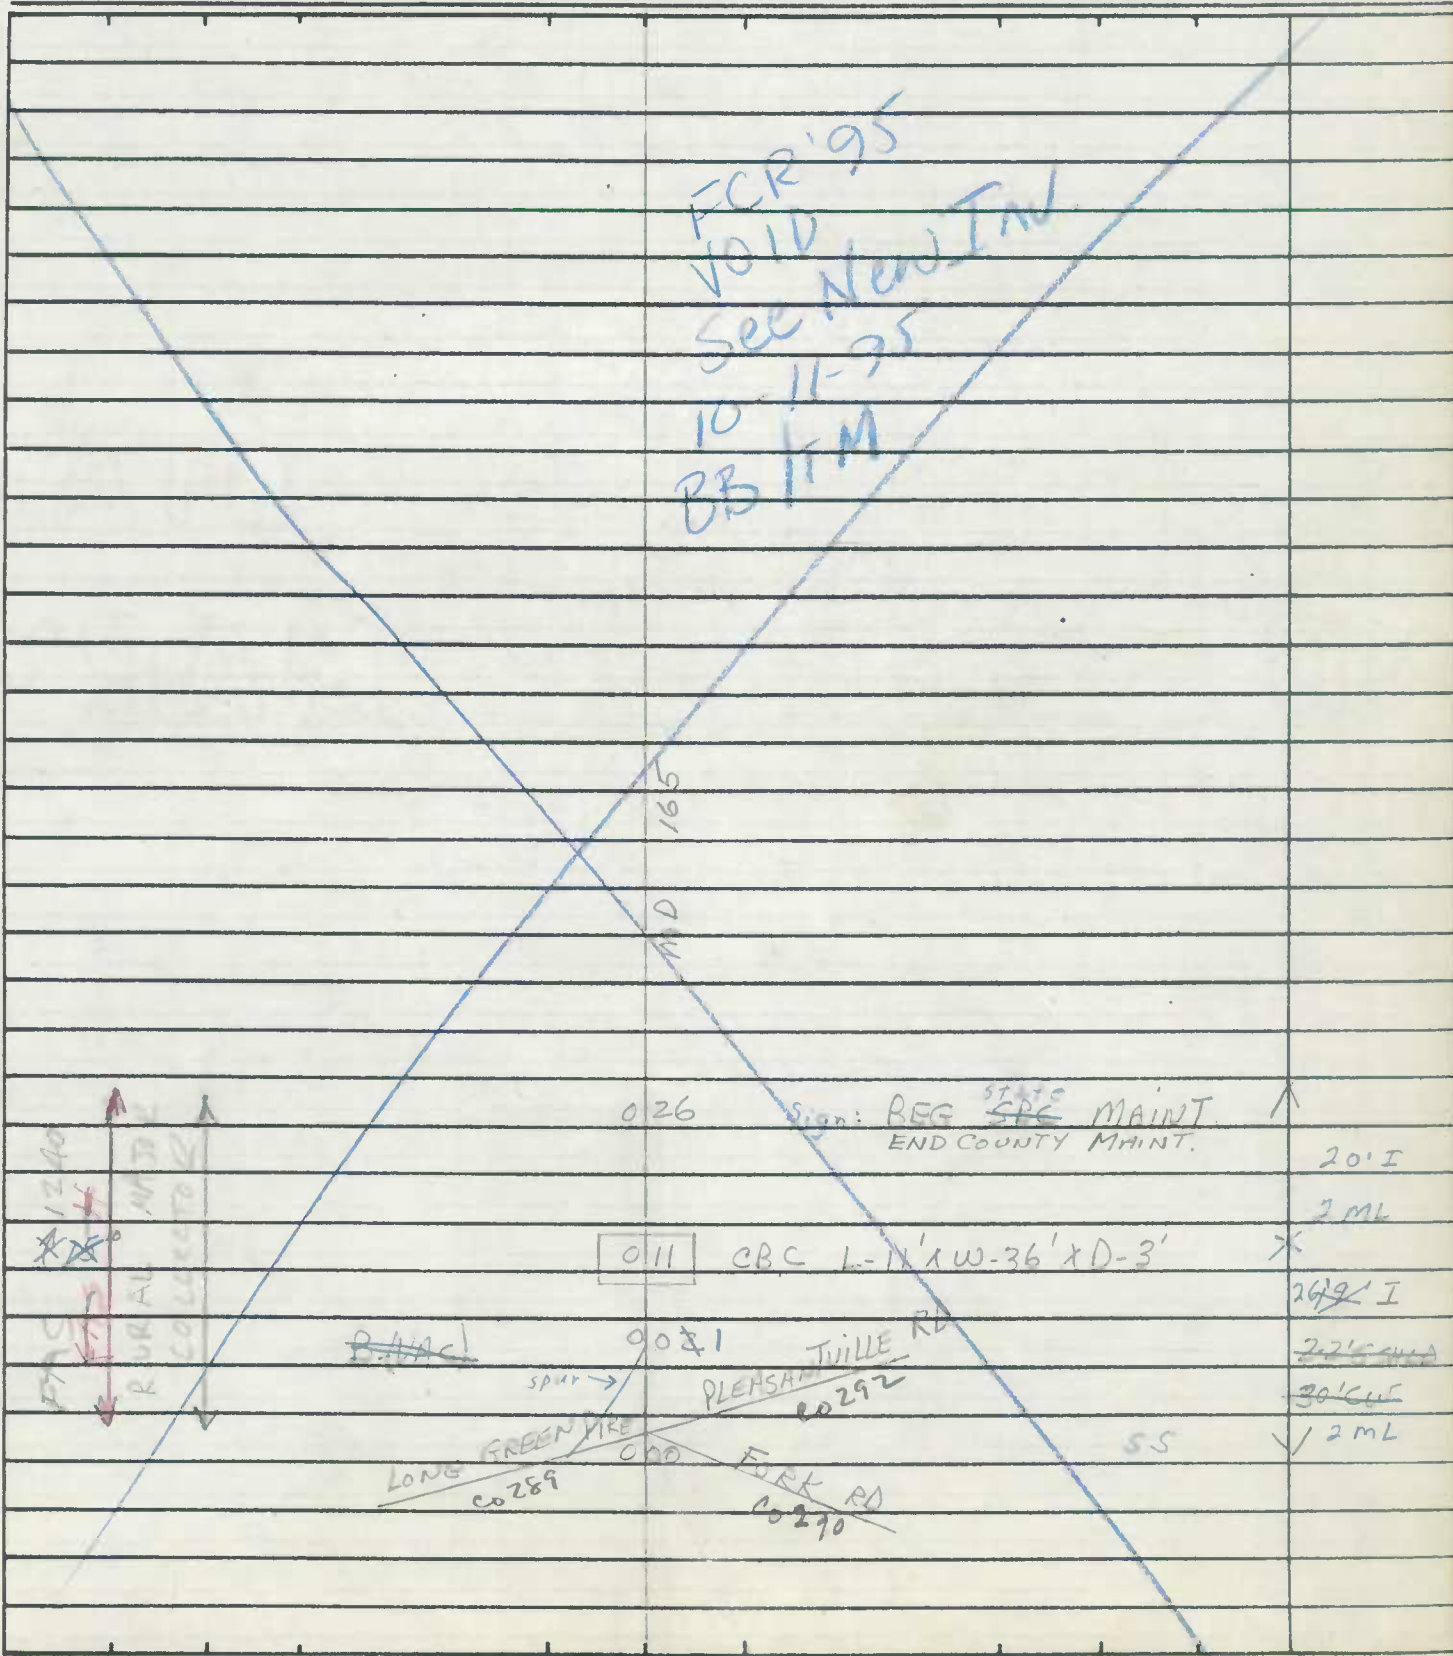 FCR '95
VOID
See New Inv
10-11-95
BB/TM
MD 165
0 26 Sign: BEG state SRC MAINT.
END COUNTY MAINT.
20' I
2 ML
0 11 CBC L-11' x W-36' x D-3'
26' I
spur →
PLEASANTVILLE RD
CO 292
30' CUT
2 ML
LONG GREEN PIKE
CO 289
0 00
FORK RD
CO 290
SS
RURAL MAJOR
COLLECTOR
1240